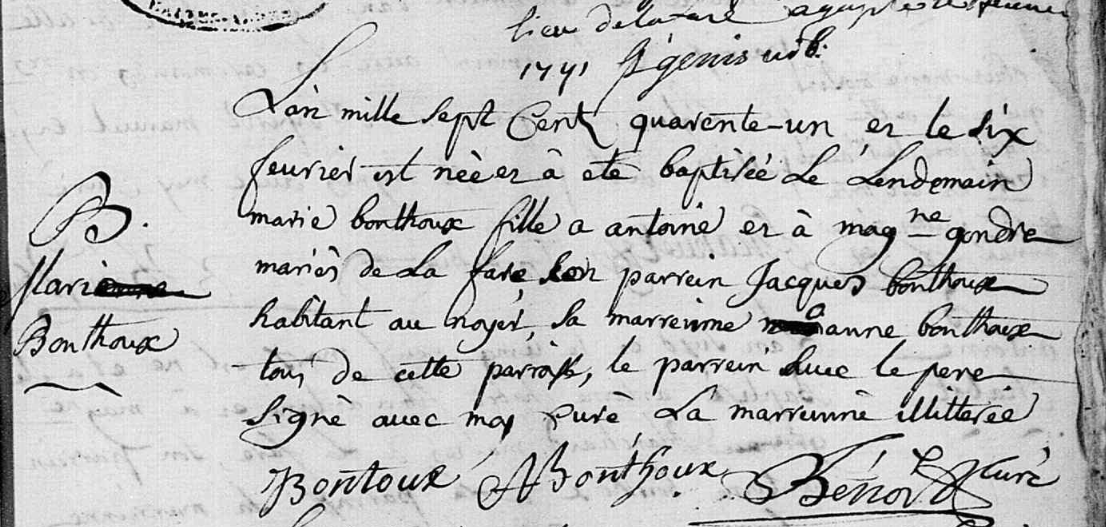 lieu de la fare
1741
L'an mille sept Cent quarente-un et le six
feurier est née et à eté baptisée Le Lendemain
marie bonthoux fille a antoine et à mag^ne gondre
mariés de La fare, son parrein Jacques bonthoux
habitant au noyer, sa marreinne anne bonthoux
tous de cette parroisse, le parrein avec le pere
signé avec moy Curé La marreinne illitérée
Bontoux ABonthoux Curé
B.
Marie
Bonthoux